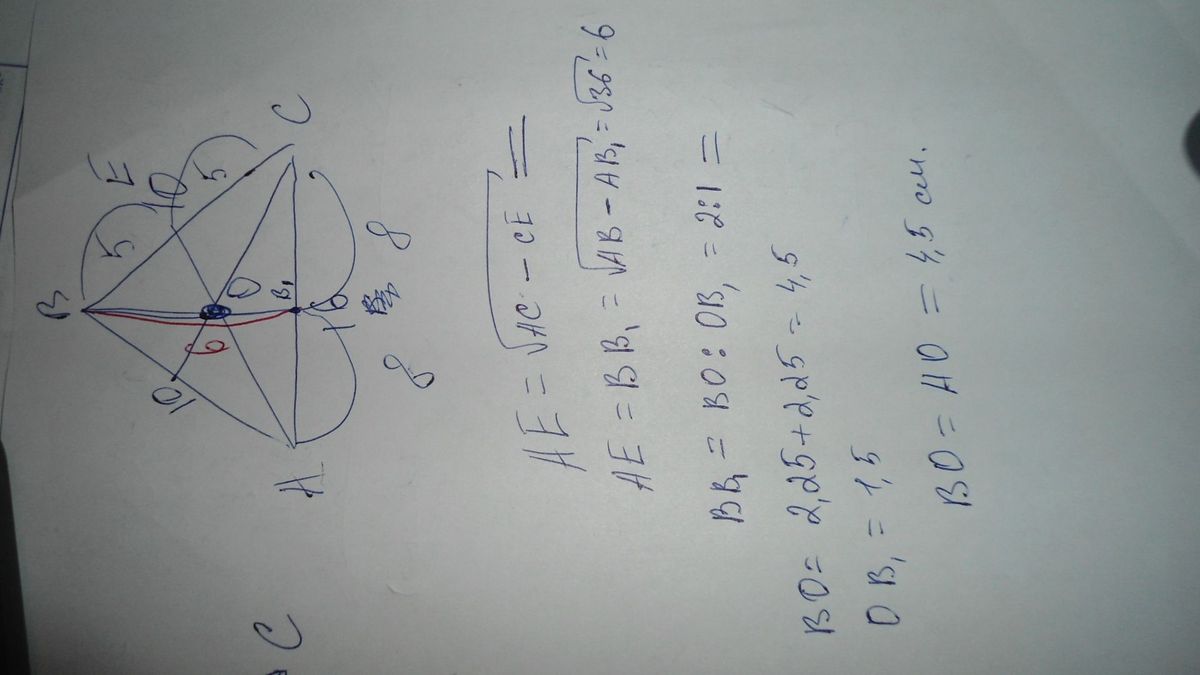 B
E
5
10
5
C
10
6
O
B₁
A
16
8
8
AE = √AC - CE =
AE = BB₁ = √AB - AB₁ = √36 = 6
BB₁ = BO : OB₁ = 2:1 =
BO = 2,25+2,25 = 4,5
OB₁ = 1,5
BO = AO = 4,5 см.
C